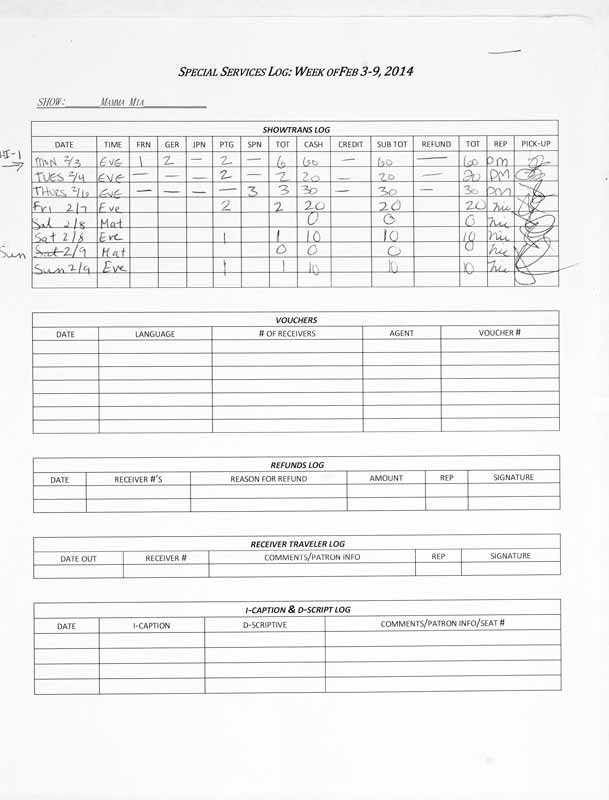 SPECIAL SERVICES LOG: WEEK OFFEB 3-9, 2014
SHOW: MAMMA MIA
SHOWTRANS LOG
DATE TIME FRN GER JPN PTG SPN TOT CASH CREDIT SUB TOT REFUND TOT REP PICK-UP
HI-1
MON 2/3 EVE 1 2 — 2 — 6 60 — 60 — 60 PM
TUES 2/4 EVE — — — 2 — 2 20 — 20 — 20 PM
THURS 2/6 EVE — — — — 3 3 30 — 30 — 30 PM
Fri 2/7 Eve 2 2 20 20 20
Sat 2/8 Mat 0 0 0
Sat 2/8 Eve 1 1 10 10 10
Sun Sat 2/9 Mat 0 0 0
Sun 2/9 Eve 1 1 10 10 10
VOUCHERS
DATE LANGUAGE # OF RECEIVERS AGENT VOUCHER #
REFUNDS LOG
DATE RECEIVER #'S REASON FOR REFUND AMOUNT REP SIGNATURE
RECEIVER TRAVELER LOG
DATE OUT RECEIVER # COMMENTS/PATRON INFO REP SIGNATURE
I-CAPTION & D-SCRIPT LOG
DATE I-CAPTION D-SCRIPTIVE COMMENTS/PATRON INFO/SEAT #